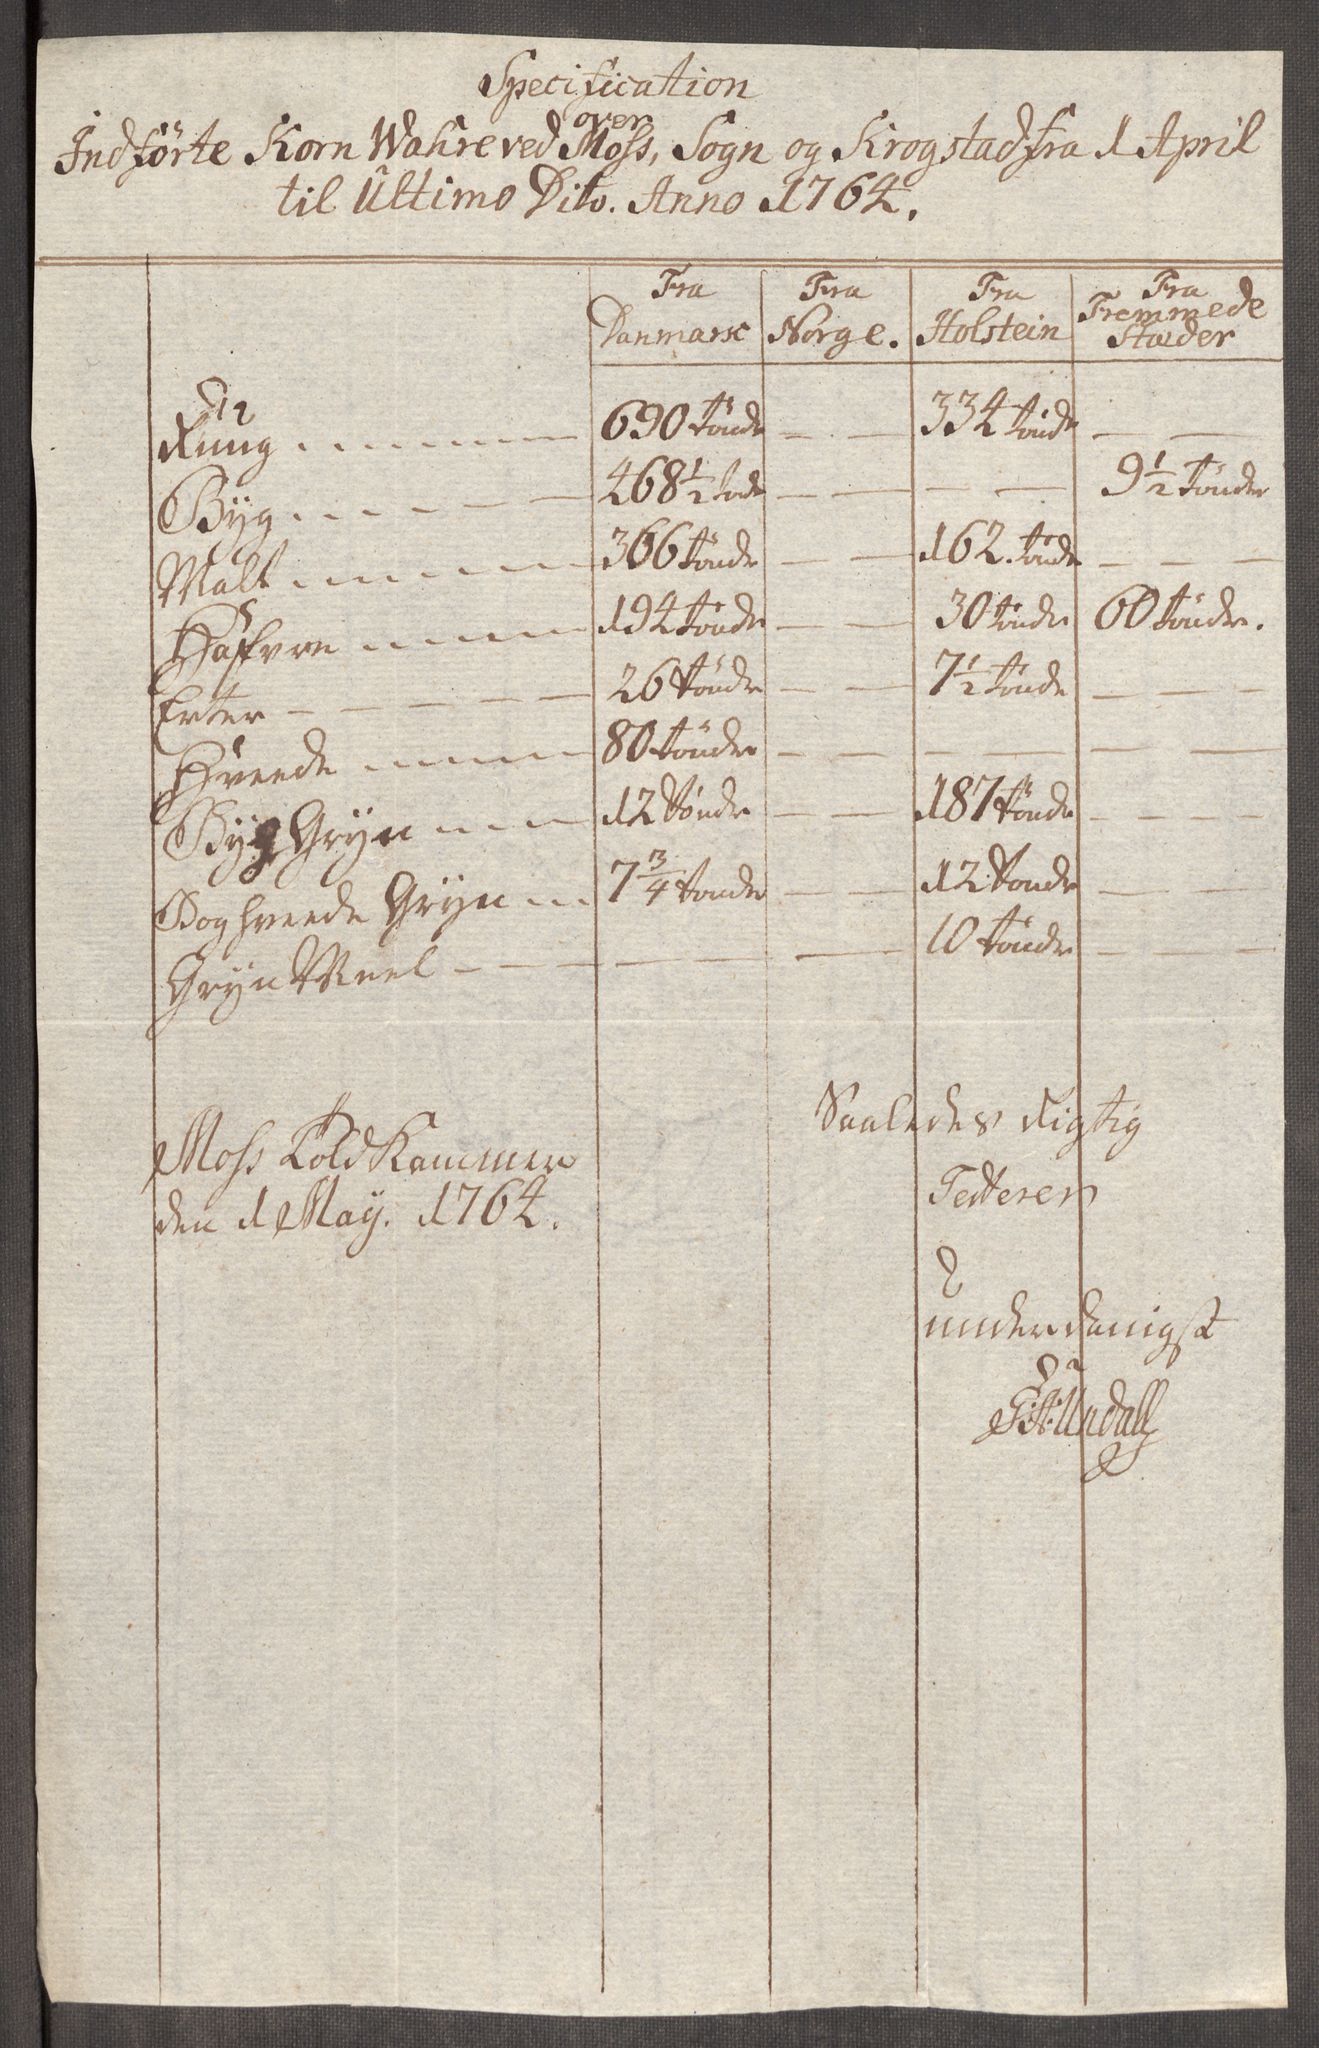 Specification
over
Indförte Korn Wahre ved Moss, Sogn og Krogstad fra 1 April
til Ultimo Dito. Anno 1764.
Fra Danmark Fra Norge. Fra Holstein Fra Fremmede Stæder
Rüüg 690 tönder — — 334 tönder — —
Byg 468 1/2 töde — — — — 9 1/2 Tönder
Malt 366 tönder — — 162. tönder — — —
Haffvre 194 tönder — — 30 tönder 60 tönder.
Erter 26 tönder — — 7 1/2 tönde — —
Hveede 80 tönder — — — — — —
Byg Gryn 12 tönder — — 187 tönder — — — —
Boghveede Gryn 7 3/4 tönder — — 12 tönder — — —
Gryn Meel — — — — 10 tönder — — —
Moss Told Kammer
den 1 May. 1764.
Saaledes Rigtig
Testerer
underdanigst
Undall